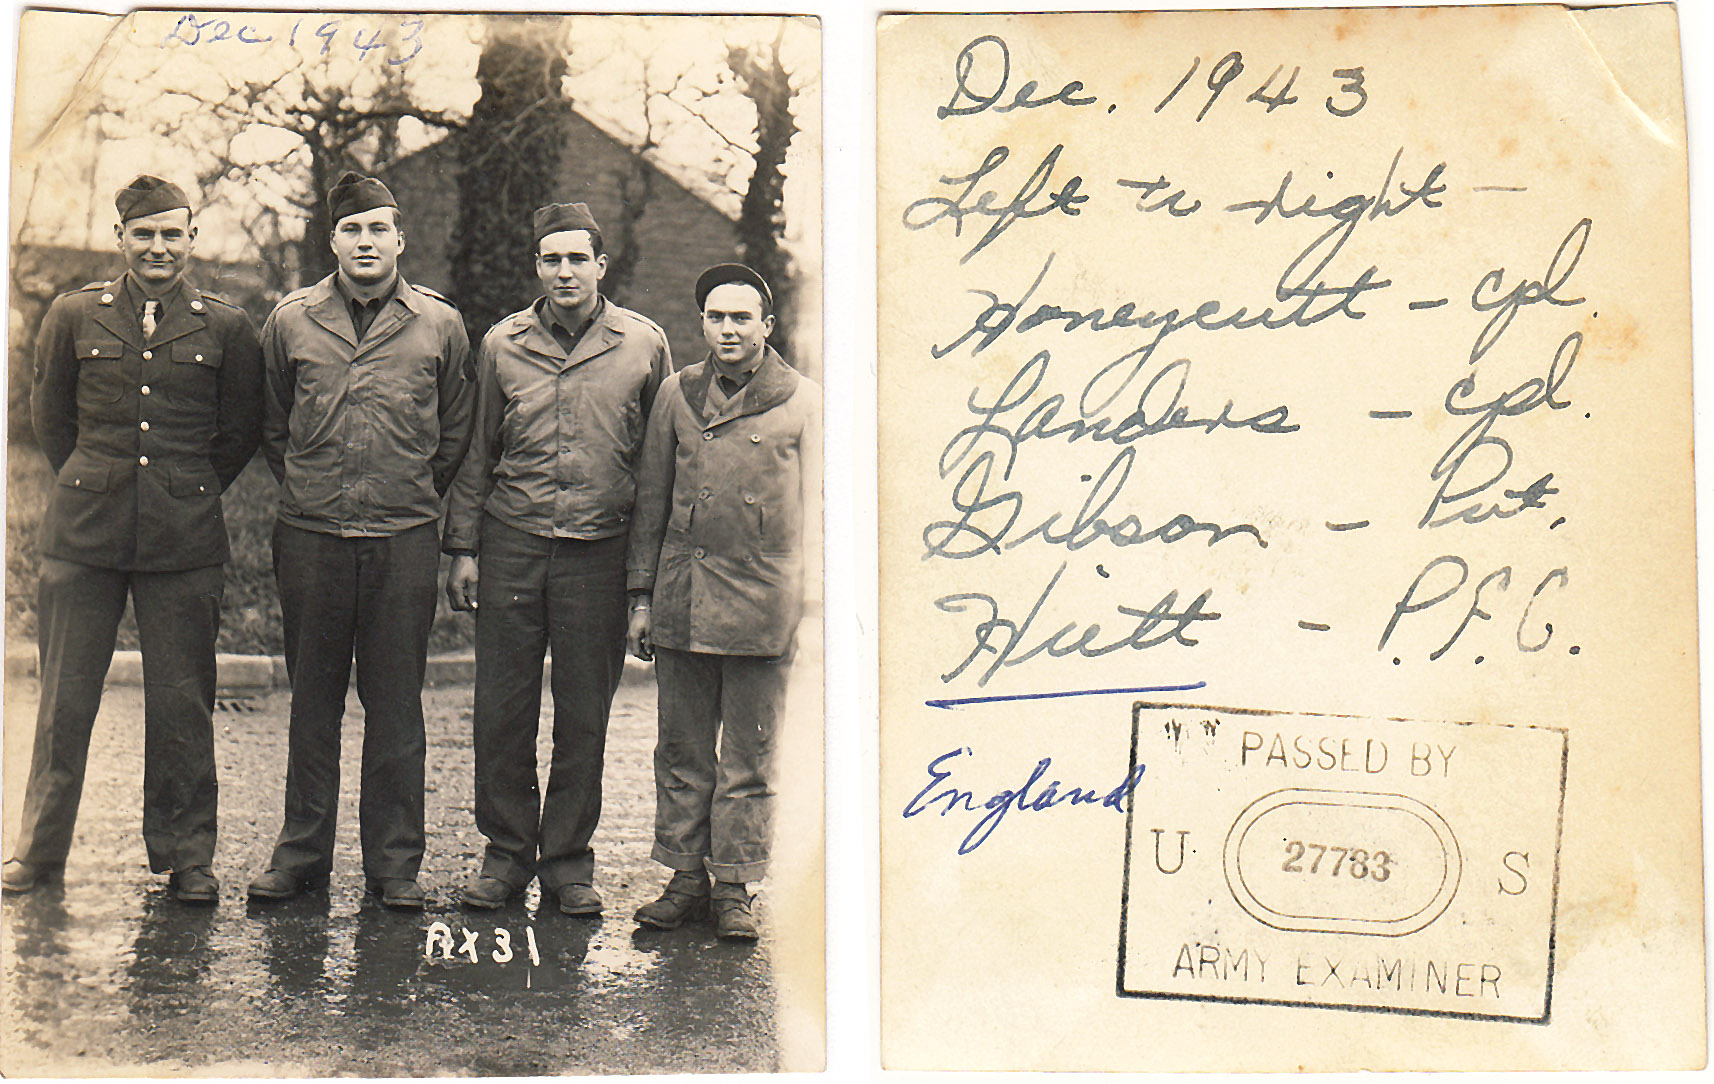 Dec 1943
AX31
Dec. 1943
Left to right -
Honeycutt - cpl.
Landers - cpl.
Gibson - Pvt.
Hiett - P.F.C.
England
PASSED BY
U 27783 S
ARMY EXAMINER